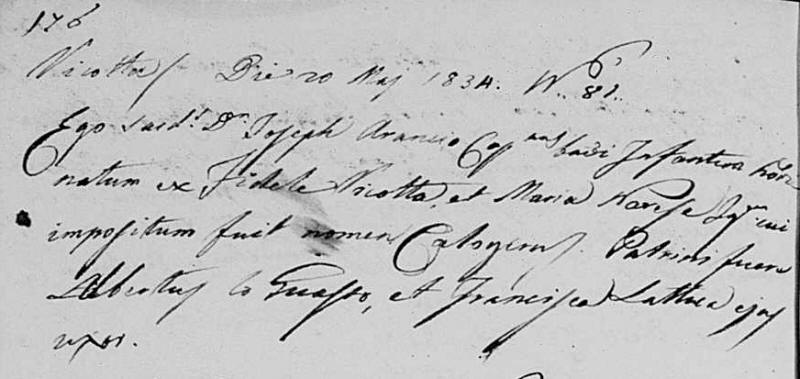 176
Nicotra Die 20 Maj 1834. N.º 81.
Ego sacd.s D.r Joseph Arancio Cap.nus bavi Infantem hodie
natum ex Fidele Nicotra, et Maria Varesa Jug. cui
impositum fuit nomen Calogerus. Patrini fuere
Albertus lo Guasto, et Francisca Lattuca ejus
uxor.